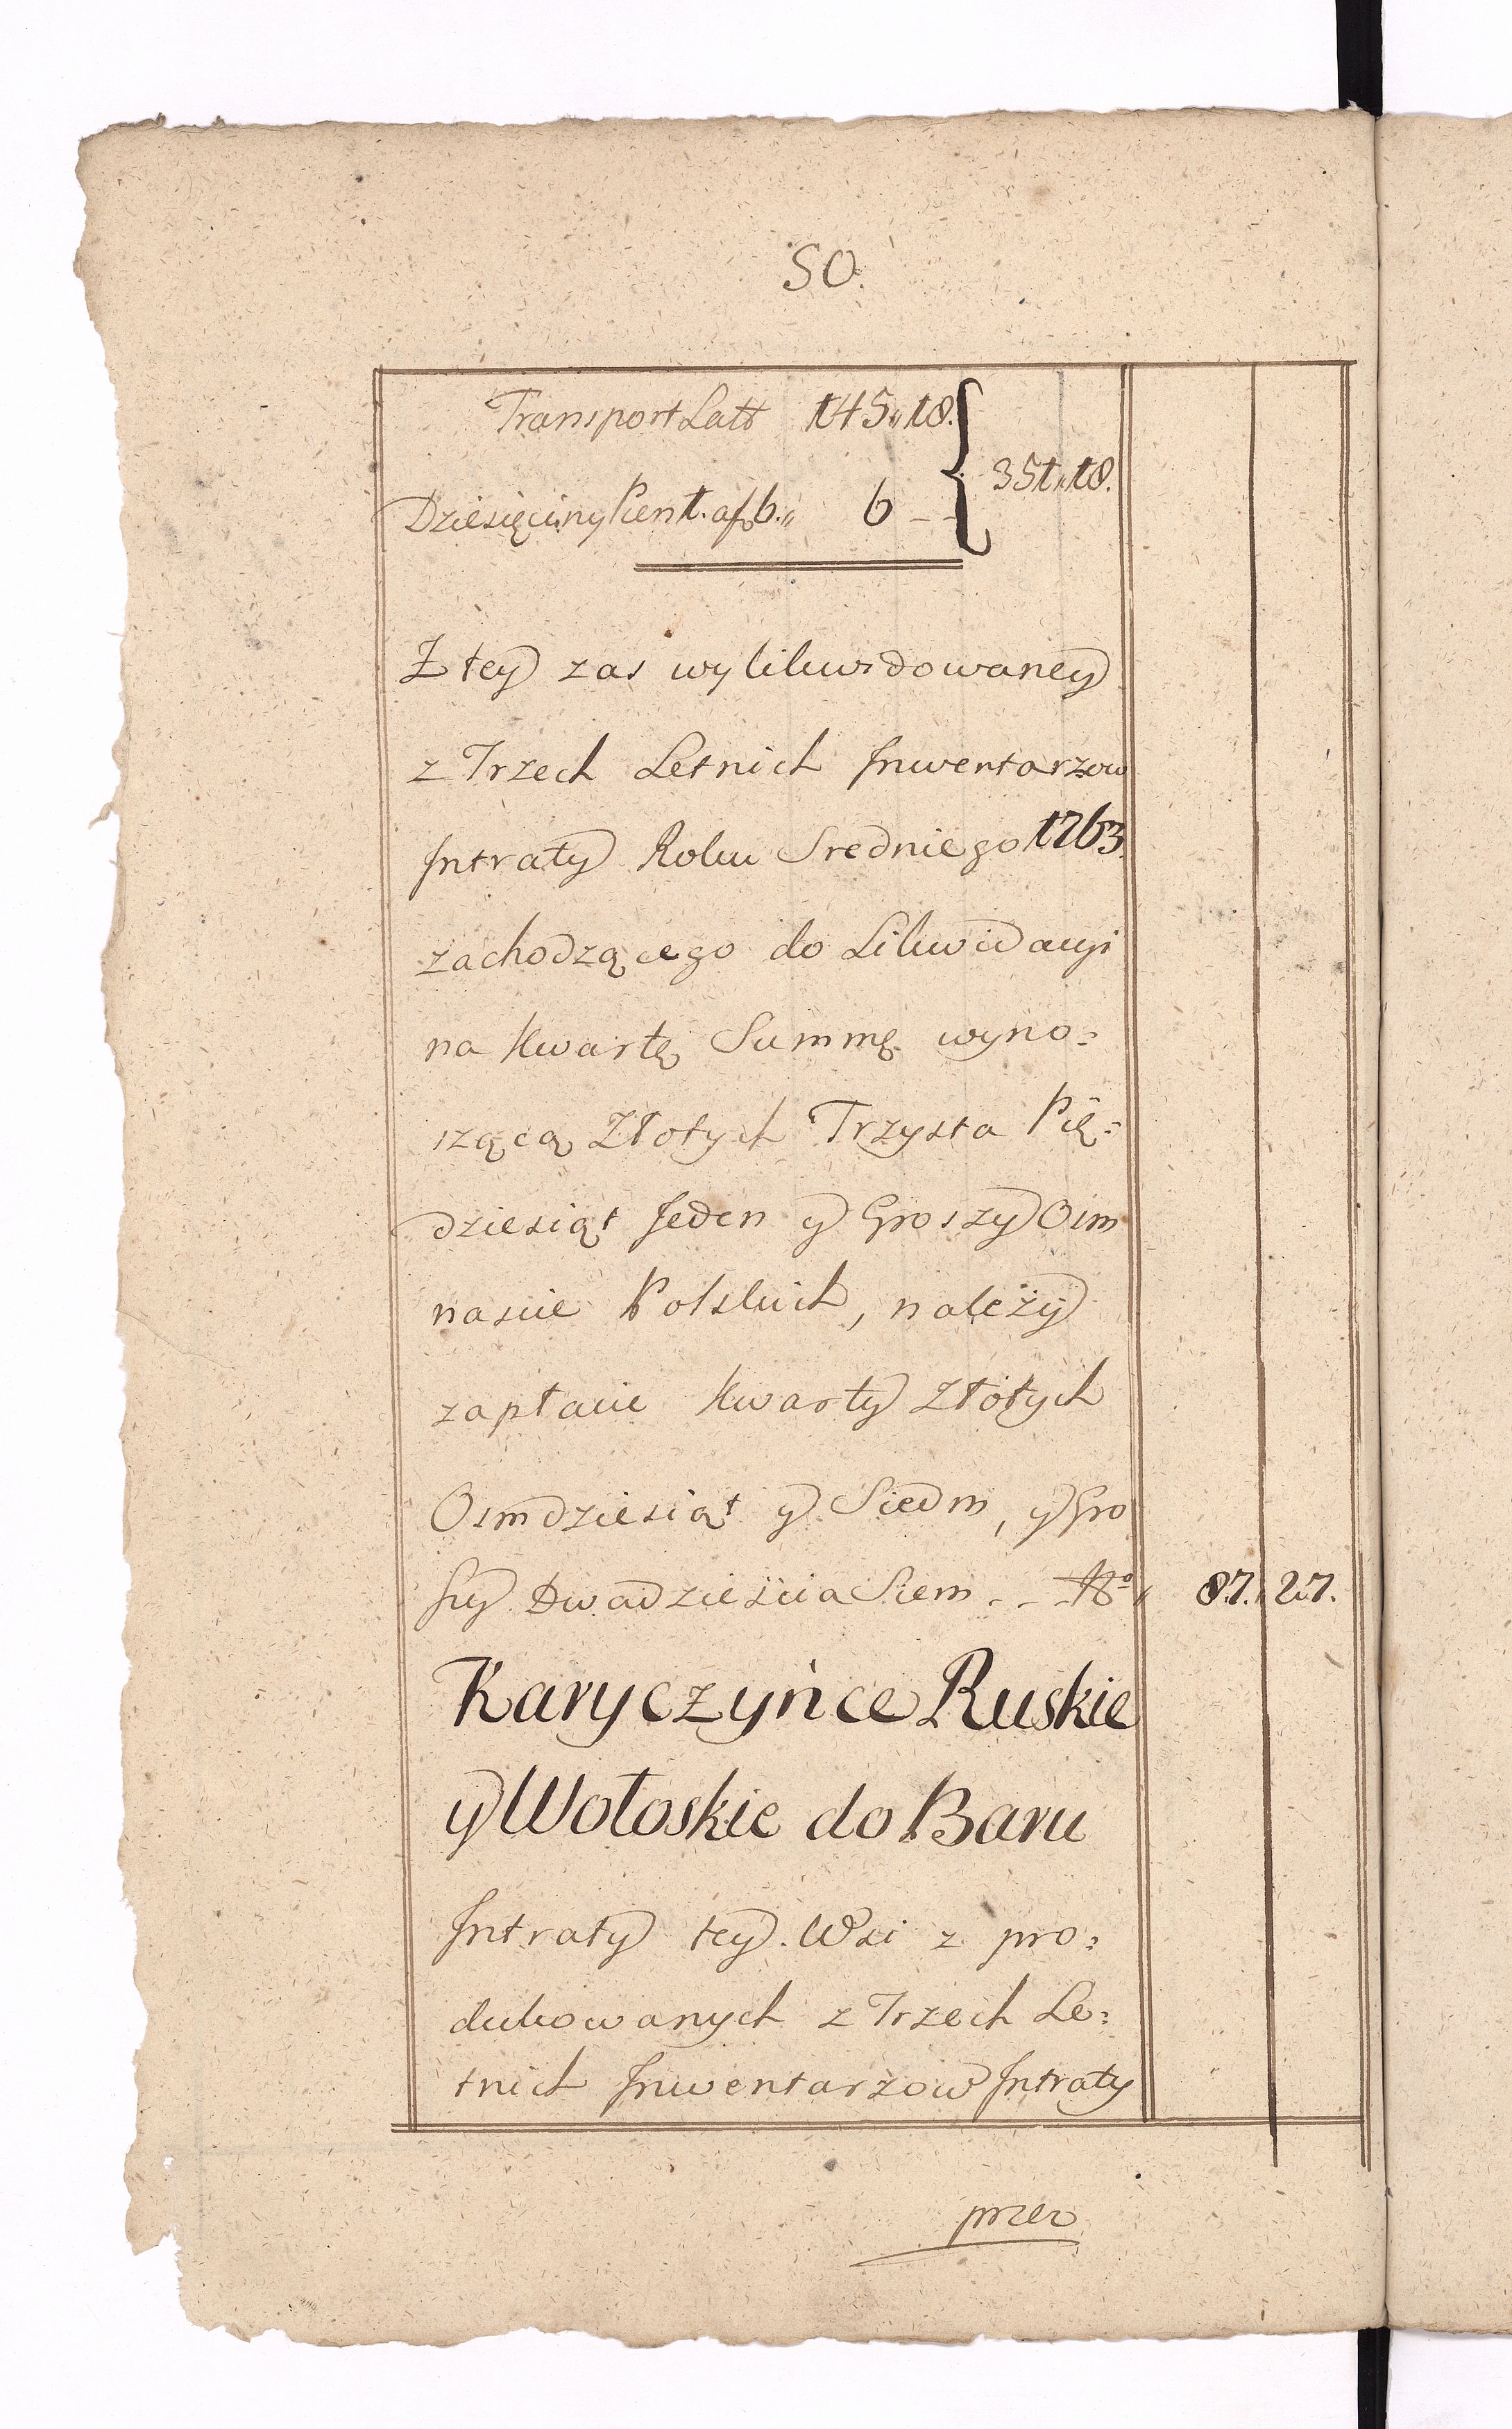 50.
Transport Latt 145„18.
351„18.
Dziesięciny Pień 1. a f 6.„ 6 - -
Z tey zas wylikwidowaney
z Trzech Letnich Inwentarzow
Intraty Roku Sredniego 1763.
zachodzącego do Likwidacyi
na Kwartę Summę wyno:
szącą Złotych Trzysta Pię:
dziesiąt Jeden y Groszy Osm
nascie Polskich, należy
zapłacic Kwarty Złotych
Osmdziesiąt y Siedm, y Gro
szy Dwadzieścia Siem - - - 87. 27.
Karyczyńce Ruskie
y Wołoskie do Baru
Intraty tey Wsi z pro:
dukowanych z Trzech Le:
tnich Inwentarzow Intraty
przez